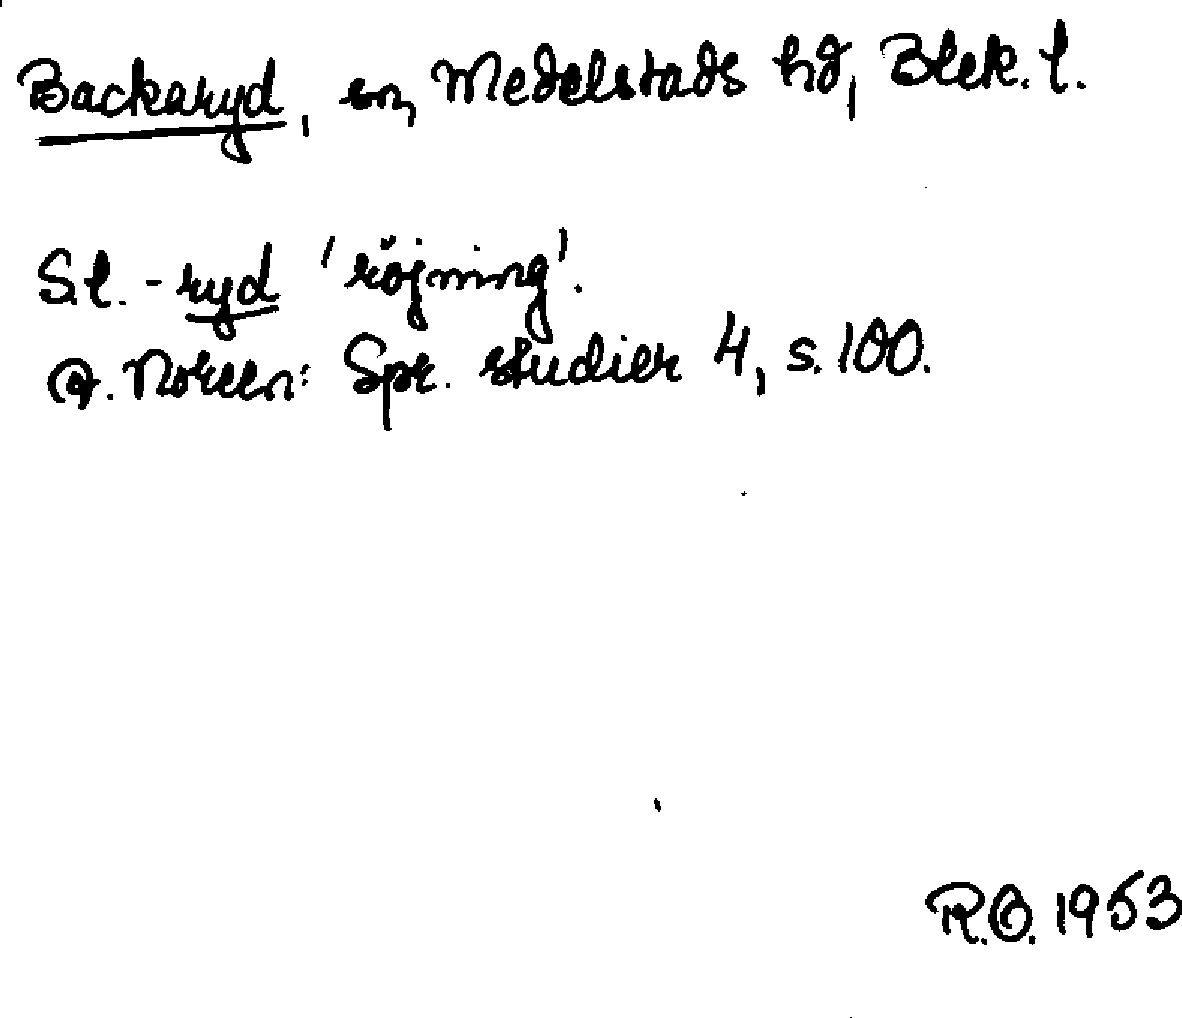 Backaryd, sn, Medelstads hd, Blek. l.
S.l. -ryd 'röjning'.
A. Noreen: Spr. studier 4, s. 100.
R.O. 1953